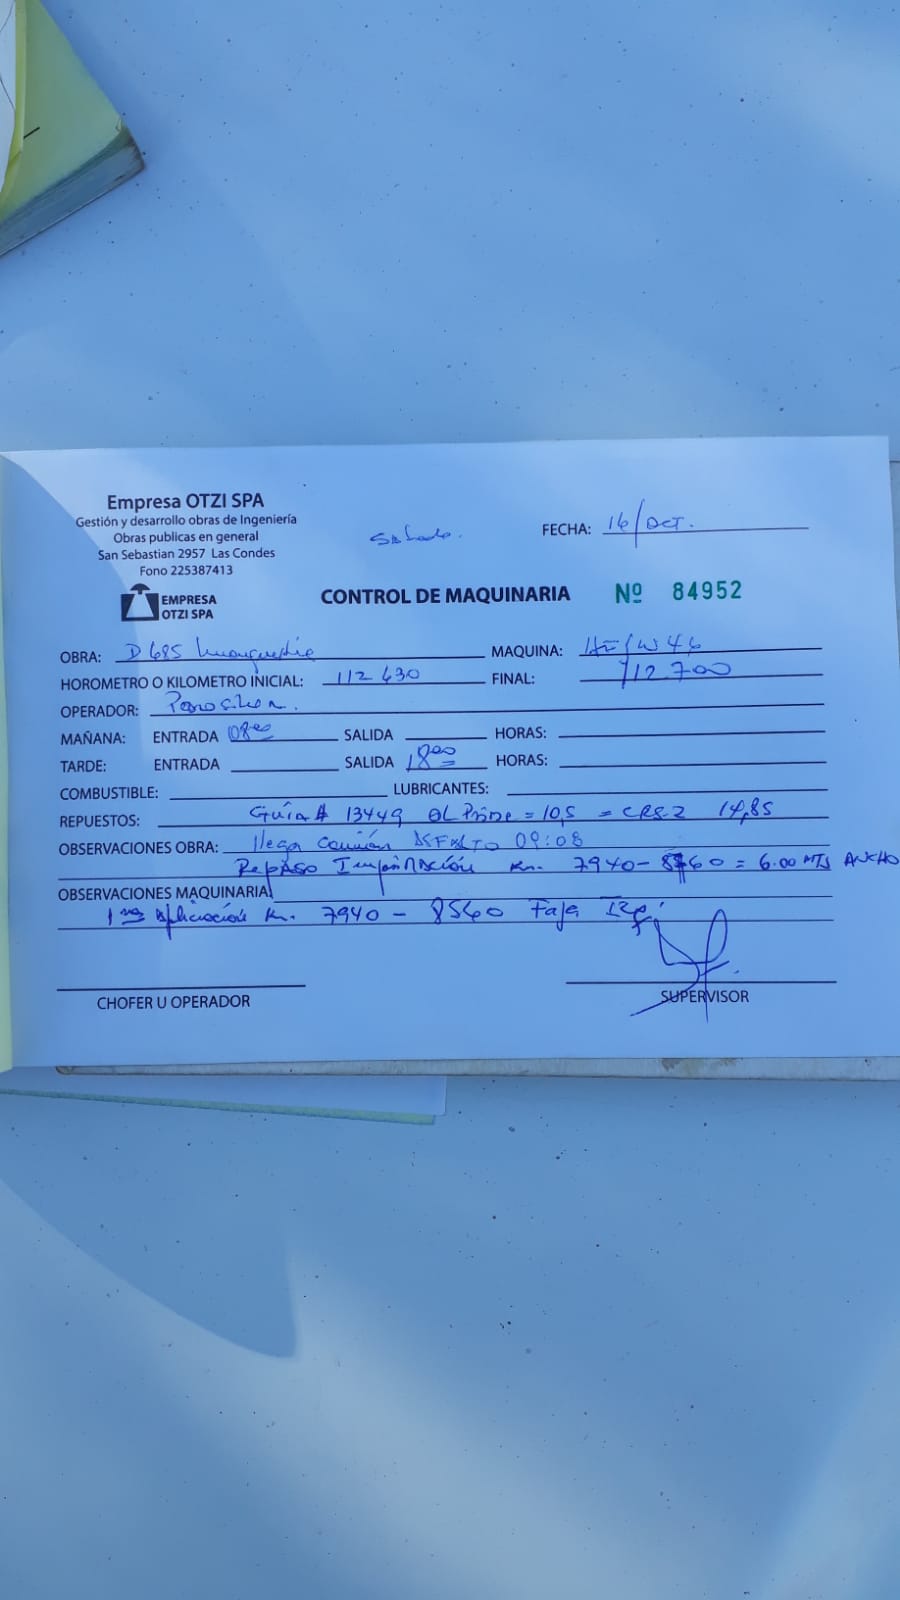 Empresa OTZI SPA
Gestión y desarrollo obras de Ingeniería
Obras publicas en general
San Sebastian 2957 Las Condes
Fono 225387413
EMPRESA
OTZI SPA
Sabado.
FECHA: 16/OCT.
CONTROL DE MAQUINARIA Nº 84952
OBRA: D 685 MAQUINA:
HOROMETRO O KILOMETRO INICIAL: 112 630 FINAL: 112.700
OPERADOR:
MAÑANA: ENTRADA 08⁰⁰ SALIDA HORAS:
TARDE: ENTRADA SALIDA 18⁰⁰ HORAS:
COMBUSTIBLE: LUBRICANTES:
REPUESTOS: Guía # 13449 = 10,5 = CRS-2 14,85
OBSERVACIONES OBRA: llega Camión ASFALTO 09:08
Repaso Imprimación Km. 7940 - 8760 = 6.00 MTS ANCHO
OBSERVACIONES MAQUINARIA:
Aplicación Km. 7940 - 8560 Faja
CHOFER U OPERADOR
SUPERVISOR